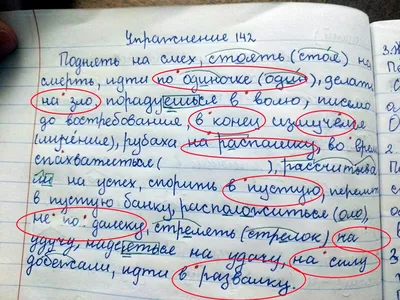 Упражнение 142
Поднять на смех, стоять (стоя) на
смерть, идти по одиночке (один), делать
на зло, порадуешься в волю, письмо
до востребования, в конец излучения
(лучение), рубаха на распашку, во время
спохватиться ( ), рассчитыва
на успех, спорить в пустую, перелить
в пустую банку, расположиться (оло),
не по далеку, стрелять (стрелок) на
удачу, надеяться на удачу, на силу
добежали, идти в развалку.